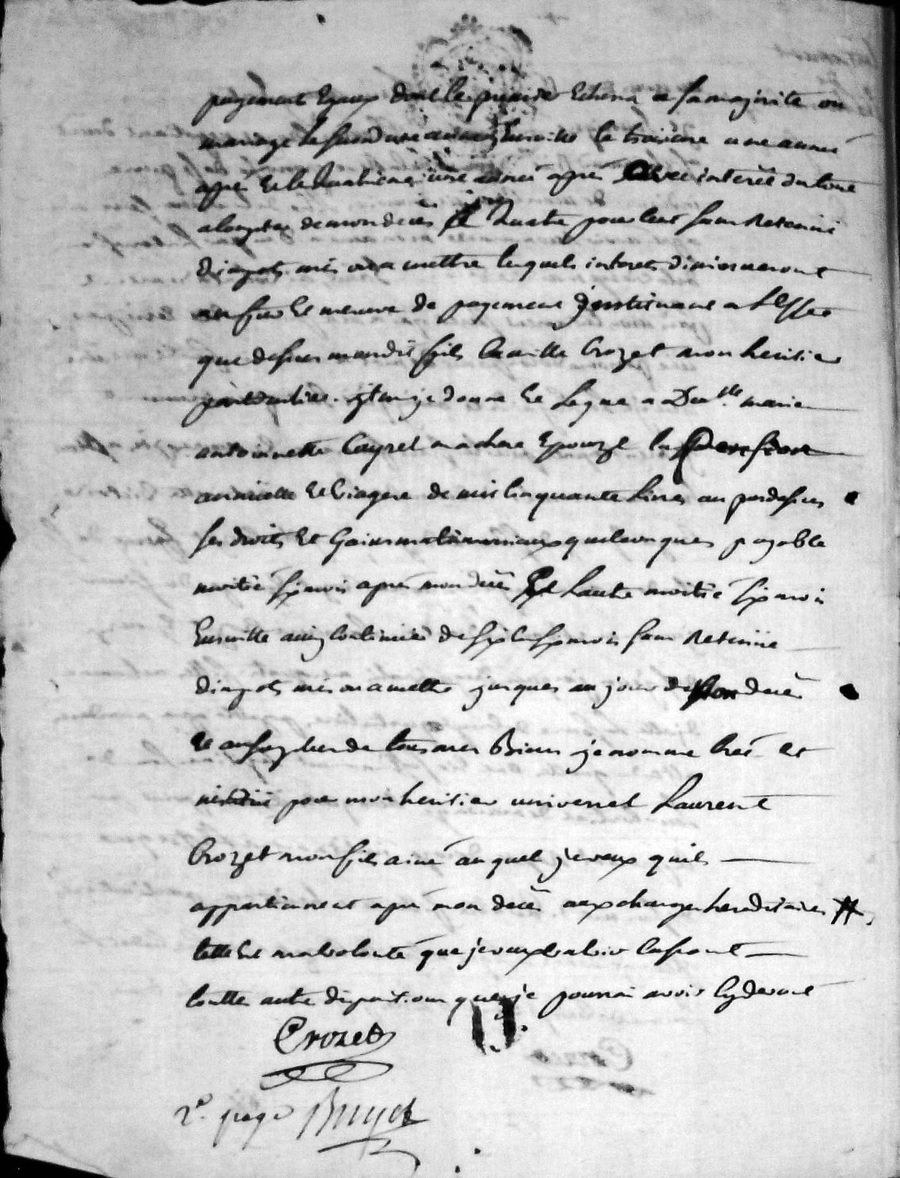 payement Egaux dont le premier Echera a sa majorité ou
mariage le second une année Ensuitte le troisieme une année
après Et le quatrieme une année après avec interêt du tout
a compter de mon décès a quatre pour cent sans Retenue
d'impots mis ou a mettre lesquels interets diminueront
au fur Et mesure de payement instituant a l'effet
que dessus mondit fils Camille Crozet mon heritier
particulier. Item je donne Et Legue a Dlle marie
antoinette Cayret ma chere Epouze la Pension
annuelle Et Viagere de mil cinquante Livres au par dessus
ses droits Et Gains matrimoniaux quelconques payable
moitié six mois après mon décès Et l'autre moitié six mois
Ensuitte ainsy continuer de six En six mois sans Retenue
d'impots mis ou a mettre jusques au jour de son décès
Et au surplus de tous mes Biens je nomme Créé et
institue pour mon heritier universel Laurent
Crozet mon fils ainé auquel je veux quils
appartiennent après mon décès aux charges hereditaires
telle Est ma volonté que je veux valoir cassant
toutte autre disposition que je pourrai avoir cy devant
Crozet
2e page Bruyet